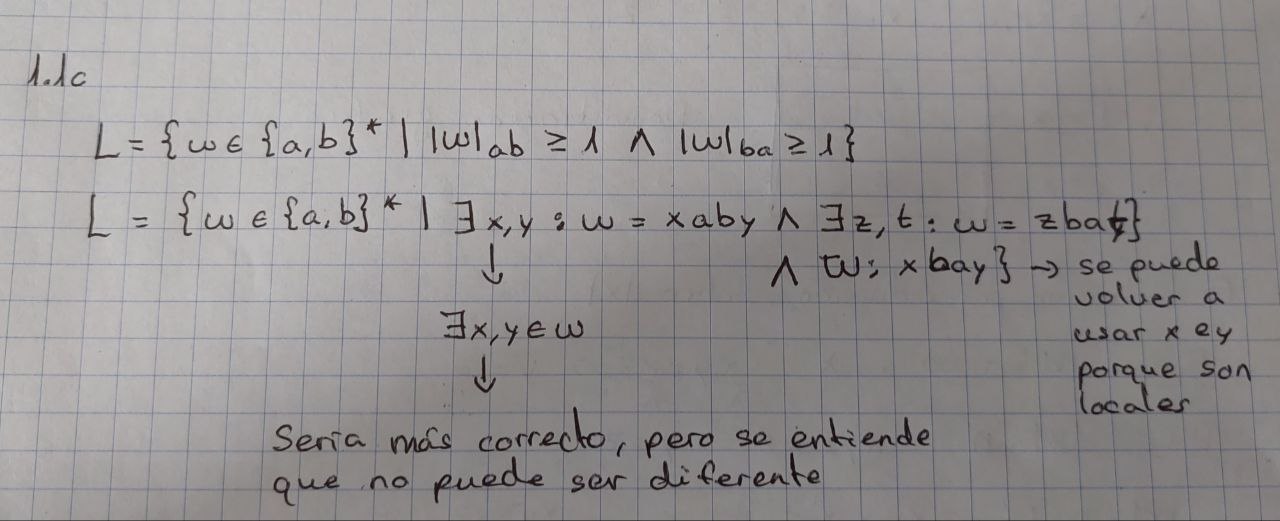 1.1c
L = {w ∈ {a,b}* | |w|ab ≥ 1 ∧ |w|ba ≥ 1}
L = {w ∈ {a,b}* | ∃x,y : w = xaby ∧ ∃z,t : w = zbat}
↓ ∧ w: xbay} → se puede
volver a
∃x,y ∈ w usar x e y
↓ porque son
locales
Sería más correcto, pero se entiende
que no puede ser diferente